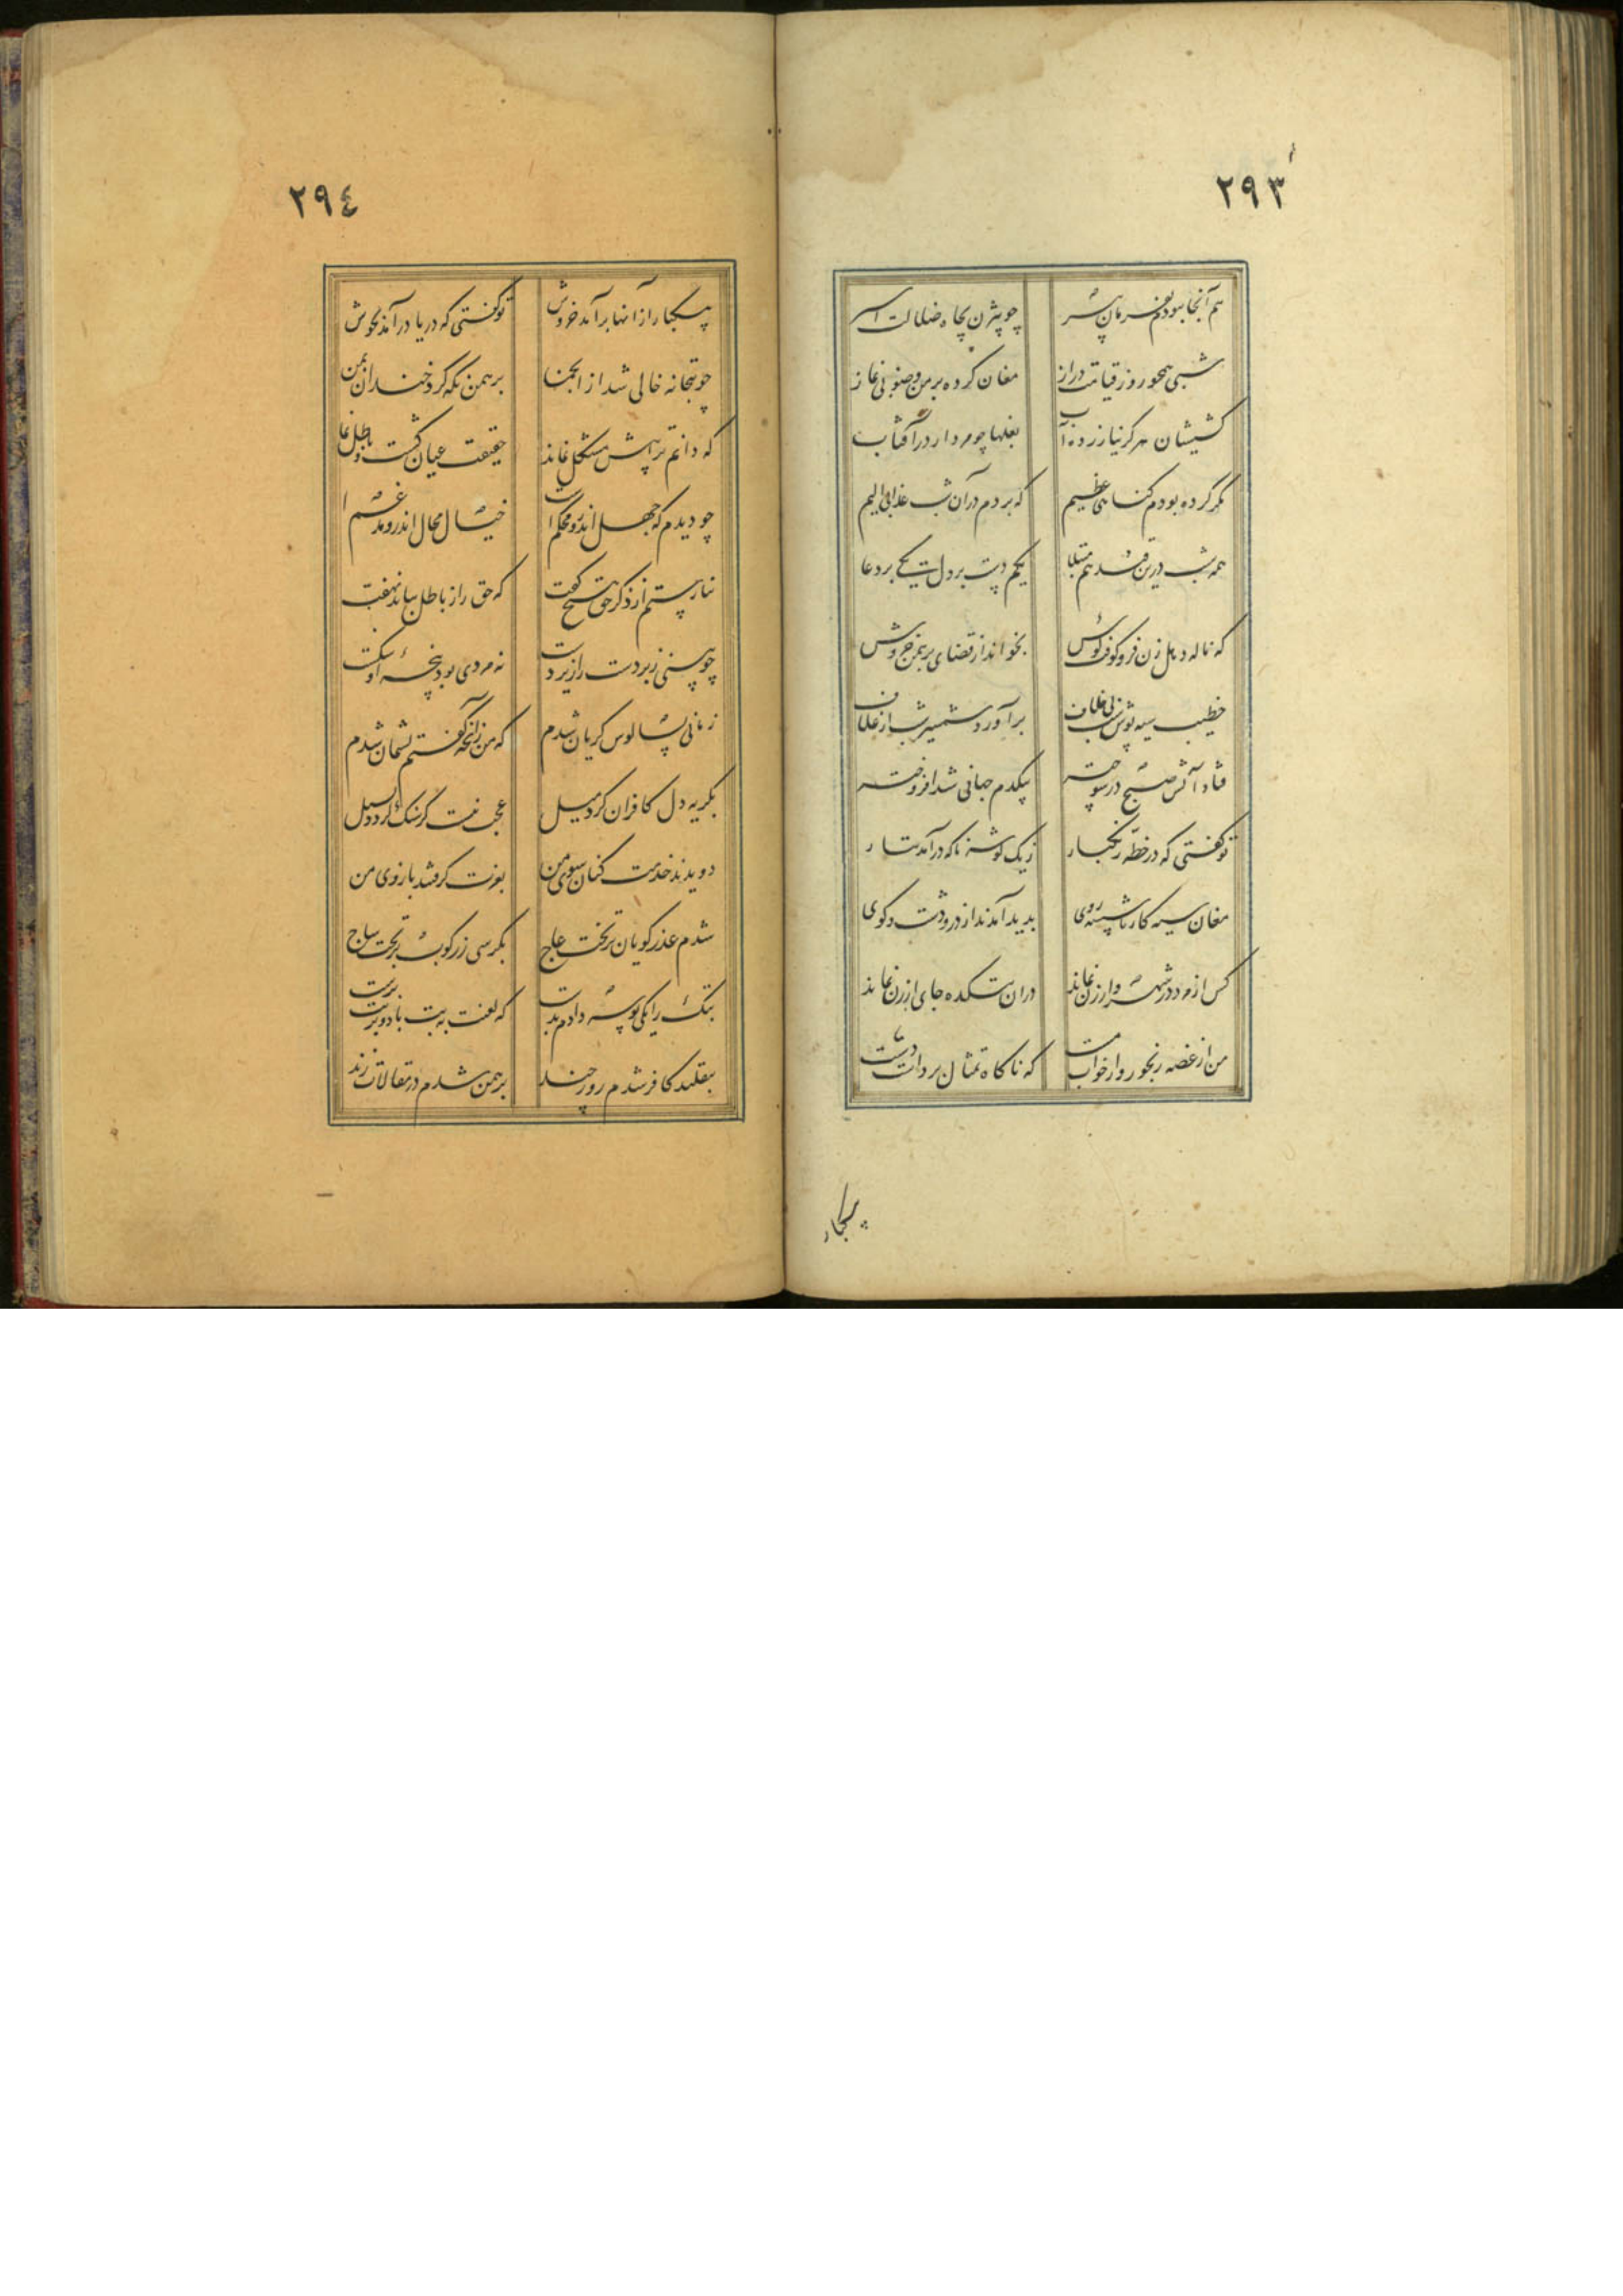 ٢٩٣
هم آنجا ببودم بفرمان پیر چو بیژن بچاه ضلالت اسیر
شبی همچو روز قیامت دراز مغان کرده بر من وضو بی نماز
کشیشان هرگز نیازرده آب بغلها چو مردار در آفتاب
مگر کرده بودم گناهی عظیم که بردم در آن شب عذابی الیم
همه شب درین قید غم مبتلا یکم دست بر دل یکی بر دعا
که ناکه دهل زن فرو کوفت کوس بخواند از قضای برهمن خروس
خطیب سیه پوش شب بی خلاف برآورد شمشیر شب از غلاف
فتاد آتش صبح در سوخته بیکدم جهانی شد افروخته
تو گفتی که در خطه زنگبار ز یک گوشه ناکه درآمد تتار
مغان سیه کار ناشسته روی بدید آمدند از در و دشت و کوی
کس از مرد در شهر و از زن نماند در آن بتکده جای ارزن نماند
من از غصه رنجور و از خواب مست که ناگاه تمثال برداشت دست
بیکبار
٢٩٤
بیکبار از آنها برآمد خروش تو گفتی که دریا درآمد بجوش
چو بتخانه خالی شد از انجمن برهمن نگه کرد خندان بمن
که دانم ترا بیش مشکل نماند حقیقت عیان گشت و باطل نماند
چو دیدم که جهل اندرو محکم است خیال محال اندرو مدغم است
نیارستم از ذکر حق هیچ گفت که حق را ز باطل بباید نهفت
چو بینی زبردست را زیردست نه مردی بود پنجه او شکست
زمانی بسالوس گریان شدم که من زآنچه گفتم پشیمان شدم
بگریه دل کافران کرد میل عجب نیست گر سنگ گردد بسیل
دویدند خدمت کنان سوی من بعزت گرفتند بازوی من
شدم عذر گویان بر تخت عاج بکرسی زر کوب بر تخت ساج
بتک را یکی بوسه دادم بدست که لعنت به بت باد و بر بت پرست
بتقلید کافر شدم روز چند برهمن شدم در مقالات زند